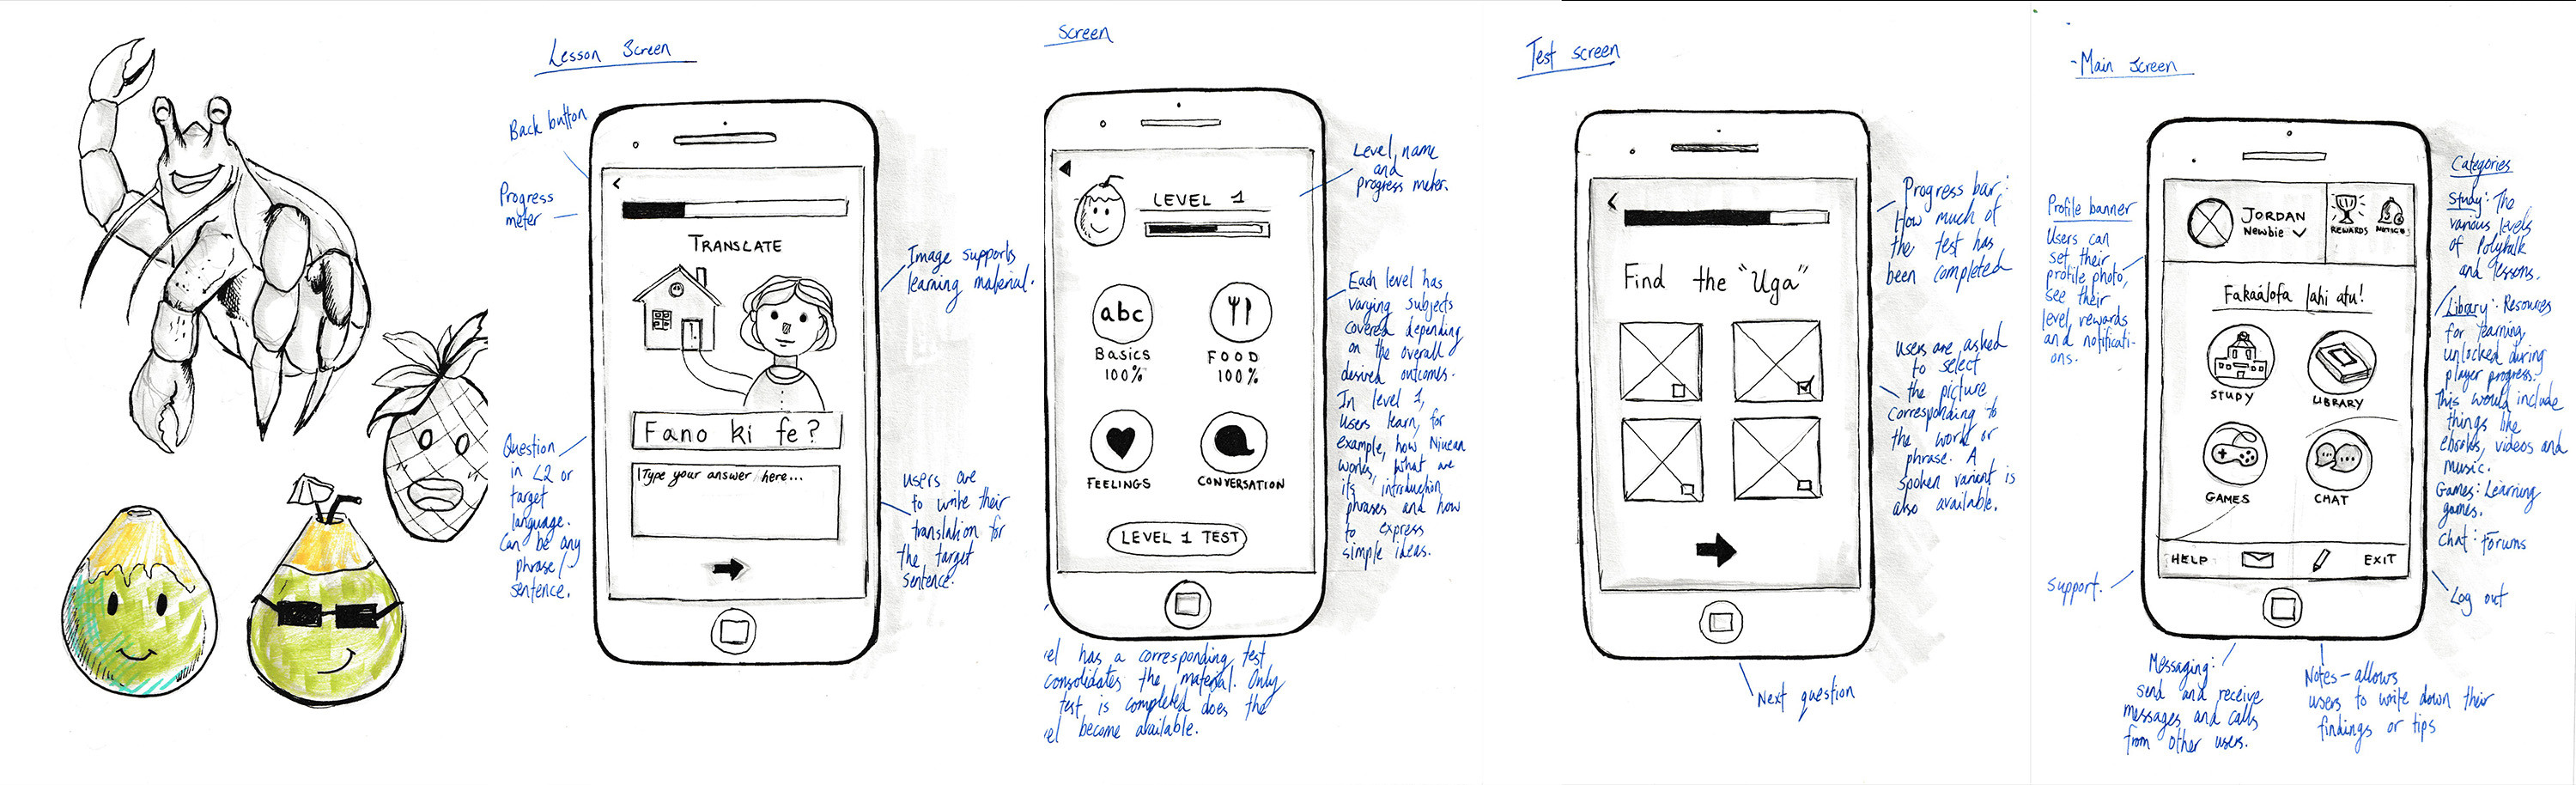 Lesson Screen
Back button
Progress
meter
TRANSLATE
Image supports
learning material.
Fano ki fe?
Type your answer here...
Question
in L2 or
target
language.
Can be any
phrase/
sentence.
users are
to write their
translation for
the target
sentence.
Screen
LEVEL 1
Level name
and
progress meter.
abc
Basics
100%
FOOD
100%
FEELINGS
CONVERSATION
LEVEL 1 TEST
Each level has
varying subjects
covered depending
on the overall
desired outcomes.
In level 1,
users learn, for
example, how Niuean
works, what are
its introduction
phrases and how
to express
simple ideas.
el has a corresponding test
consolidates the material. Only
test is completed does the
el become available.
Test screen
Find the "Uga"
Progress bar:
How much of
the test has
been completed
users are asked
to select
the picture
corresponding to
the work or
phrase. A
spoken variant is
also available.
Next question
-Main Screen
Profile banner
Users can
set their
profile photo,
see their
level, rewards
and notificati-
ons.
JORDAN
Newbie
REWARDS
NOTICES
Fakaálofa lahi atu!
STUDY
LIBRARY
GAMES
CHAT
HELP
EXIT
Categories
Study: The
various levels
of Polytalk
and lessons.
Library: Resources
for learning
unlocked during
player progress.
This would include
things like
ebooks, videos and
music.
Games: Learning
games.
Chat: Forums
Support.
Log out
Messaging:
send and receive
messages and calls
from other users.
Notes - allows
users to write down their
findings or tips